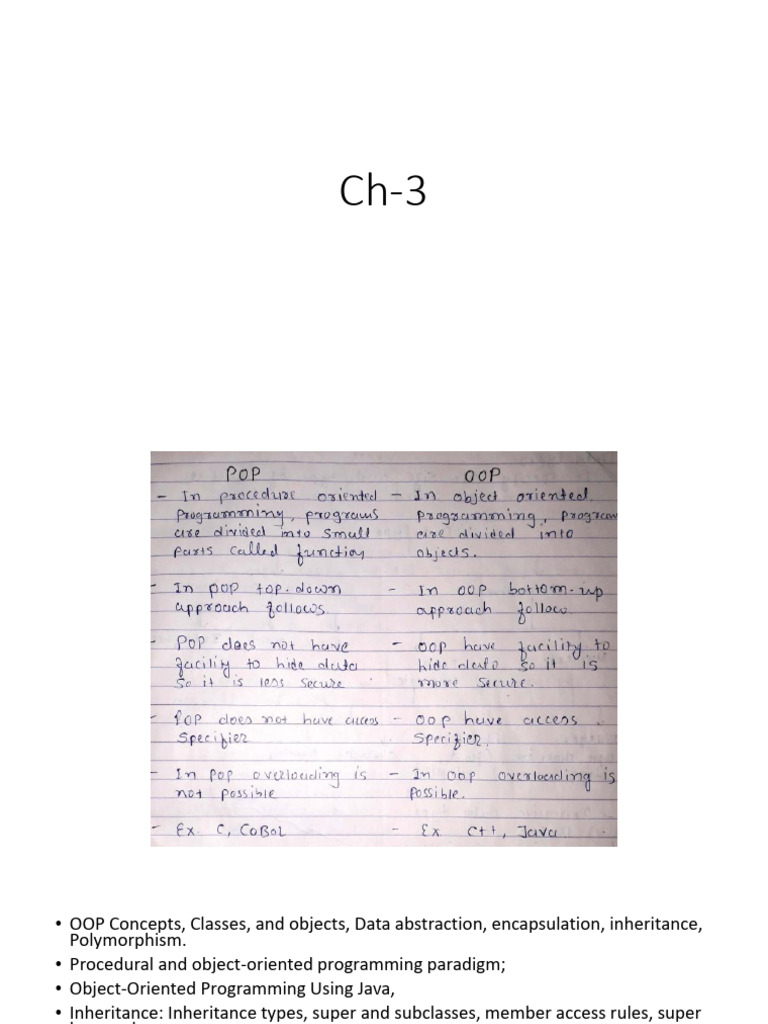 Ch-3
POP OOP
- In procedure oriented - In object oriented
programming, programs programming, program
are divided into small are divided into
parts called function objects.
- In POP top-down - In OOP bottom-up
approach follows. approach follow.
- POP does not have - OOP have facility to
facility to hide data hide data so it is
so it is less secure more secure.
- POP does not have access - OOP have access
specifier specifier.
- In POP overloading is - In OOP overloading is
not possible possible.
- Ex. C, COBOL - Ex C++, Java
• OOP Concepts, Classes, and objects, Data abstraction, encapsulation, inheritance,
Polymorphism.
• Procedural and object-oriented programming paradigm;
• Object-Oriented Programming Using Java,
• Inheritance: Inheritance types, super and subclasses, member access rules, super